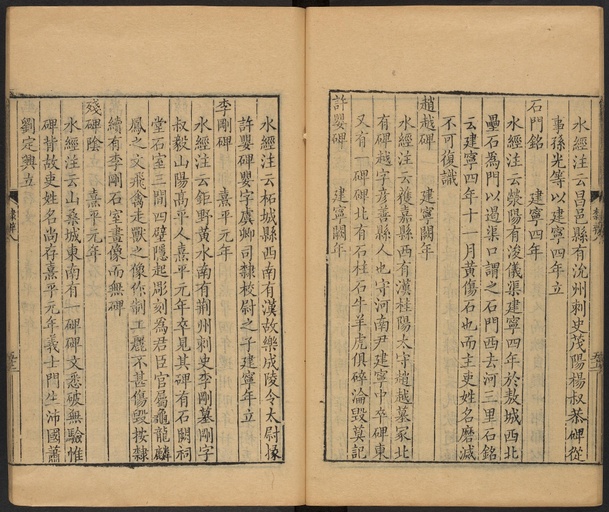 水經注云昌邑縣有沇州刺史茂陽楊叔恭碑從
事孫光等以建寧四年立
石門銘　建寧四年
水經注云滎陽有浚儀渠建寧四年於敖城西北
壘石為門以遏渠口謂之石門西去河三里石銘
云建寧四年十一月黃傷石也而主吏姓名磨滅
不可復識
趙越碑　建寧闕年
水經注云獲嘉縣西有漢桂陽太守趙越墓冢北
有碑越字彦善縣人也守河南尹建寧中卒碑東
又有一碑碑北有石柱石牛羊虎俱碎淪毀莫記
許嬰碑　建寧闕年
水經注云柘城縣西南有漢故樂成陵令太尉掾
許嬰碑嬰字虞卿司隸校尉之子建寧年立
李剛碑　熹平元年
水經注云鉅野黃水南有荆州刺史李剛墓剛字
叔毅山陽高平人熹平元年卒見其碑有石闕祠
堂石室三間四壁隱起彫刻為君臣官屬龜龍麟
鳳之文飛禽走獸之像作制工麗不甚傷毀按隸
續有李剛石室畫像而無碑
殘碑陰　熹平元年
水經注云山桑城東南有一碑碑文悉破無驗惟
碑背故吏姓名尚存熹平元年義士門生沛國蕭
劉定興立